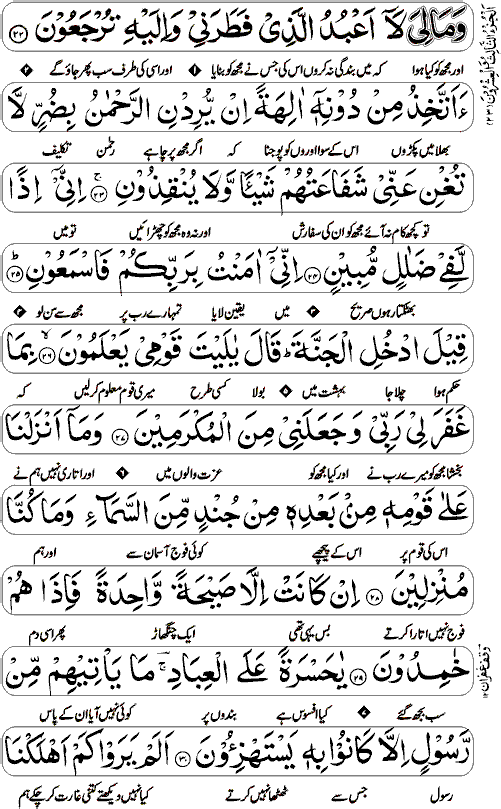 وَمَا لِیَ لَاۤ اَعْبُدُ الَّذِیْ فَطَرَنِیْ وَاِلَیْهِ تُرْجَعُوْنَ ﴿۲۲﴾
اور مجھ کو کیا ہوا کہ میں بندگی نہ کروں اس کی جس نے مجھ کو بنایا اور اسی کی طرف سب پھر جاؤ گے
ءَاَتَّخِذُ مِنْ دُوْنِهٖۤ اٰلِهَةً اِنْ یُّرِدْنِ الرَّحْمٰنُ بِضُرٍّ لَّا
بھلا میں پکڑوں اس کے سوا اوروں کو پوجنا کہ اگر مجھ پر چاہے رحمٰن تکلیف
تُغْنِ عَنِّیْ شَفَاعَتُهُمْ شَیْـًٔا وَّلَا یُنْقِذُوْنِ ﴿۲۳﴾ اِنِّیْۤ اِذًا
تو کچھ کام نہ آئے مجھ کو ان کی سفارش اور نہ وہ مجھ کو چھڑائیں تو میں
لَّفِیْ ضَلٰلٍ مُّبِیْنٍ ﴿۲۴﴾ اِنِّیْۤ اٰمَنْتُ بِرَبِّكُمْ فَاسْمَعُوْنِ ﴿۲۵﴾
بھٹکتا رہوں صریح میں یقین لایا تمہارے رب پر مجھ سے سن لو
قِیْلَ ادْخُلِ الْجَنَّةَ ؕ قَالَ یٰلَیْتَ قَوْمِیْ یَعْلَمُوْنَ ﴿۲۶﴾ بِمَا
حکم ہوا چلا جا بہشت میں بولا کسی طرح میری قوم معلوم کرلیں کہ
غَفَرَ لِیْ رَبِّیْ وَجَعَلَنِیْ مِنَ الْمُكْرَمِیْنَ ﴿۲۷﴾ وَمَاۤ اَنْزَلْنَا
بخشا مجھ کو میرے رب نے اور کیا مجھ کو عزت والوں میں اور اتاری نہیں ہم نے
عَلٰی قَوْمِهٖ مِنْ بَعْدِهٖ مِنْ جُنْدٍ مِّنَ السَّمَآءِ وَمَا كُنَّا
اس کی قوم پر اس کے پیچھے کوئی فوج آسمان سے اور ہم
مُنْزِلِیْنَ ﴿۲۸﴾ اِنْ كَانَتْ اِلَّا صَیْحَةً وَّاحِدَةً فَاِذَا هُمْ
فوج نہیں اتارا کرتے بس یہی تھی ایک چنگھاڑ پھر اسی دم
خٰمِدُوْنَ ﴿۲۹﴾ یٰحَسْرَةً عَلَی الْعِبَادِ ۚ مَا یَاْتِیْهِمْ مِّنْ
سب بجھ گئے کیا افسوس ہے بندوں پر کوئی نہیں آیا ان کے پاس
رَّسُوْلٍ اِلَّا كَانُوْا بِهٖ یَسْتَهْزِءُوْنَ ﴿۳۰﴾ اَلَمْ یَرَوْا كَمْ اَهْلَكْنَا
رسول جس سے ٹھٹھا نہیں کرتے کیا نہیں دیکھتے کتنی غارت کر چکے ہم